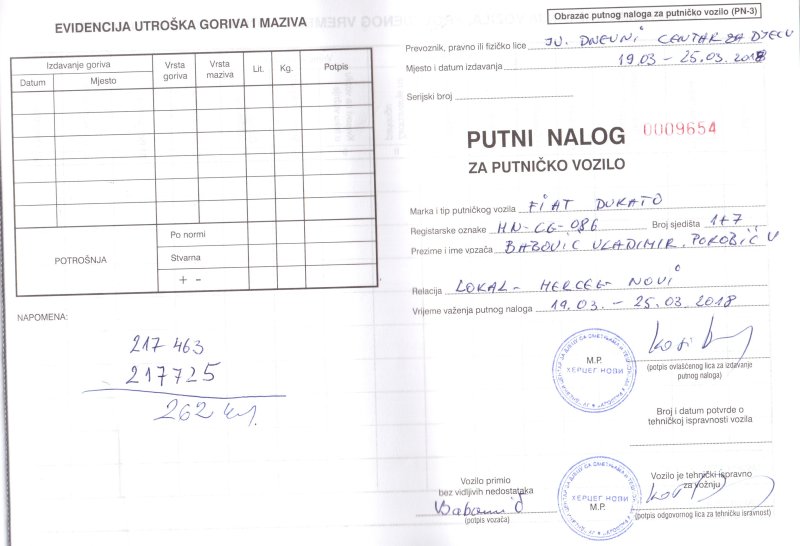 EVIDENCIJA UTROŠKA GORIVA I MAZIVA
Izdavanje goriva
Datum
Mjesto
Vrsta goriva
Vrsta maziva
Lit.
Kg.
Potpis
POTROŠNJA
Po normi
Stvarna
+ -
NAPOMENA:
217 463
217725
262
Obrazac putnog naloga za putničko vozilo (PN-3)
Prevoznik, pravno ili fizičko lice JU. DNEVNI CENTAR ZA DJECU
Mjesto i datum izdavanja 19.03 - 25.03. 2018
Serijski broj
PUTNI NALOG 0009654
ZA PUTNIČKO VOZILO
Marka i tip putničkog vozila FIAT DUKATO
Registarske oznake HN-CG-086 Broj sjedišta 1+7
Prezime i ime vozača BABOVIĆ VLADIMIR. POROBIĆ V
Relacija LOKAL - HERCEG NOVI
Vrijeme važenja putnog naloga 19.03. - 25.03. 2018
М.Р.
ХЕРЦЕГ НОВИ
(potpis ovlašćenog lica za izdavanje
putnog naloga)
Broj i datum potvrde o
tehničkoj ispravnosti vozila
Vozilo primio
bez vidljivih nedostataka
(potpis vozača)
ХЕРЦЕГ НОВИ
М.Р.
Vozilo je tehnički ispravno
za vožnju
(potpis odgovornog lica za tehničku isravnost)